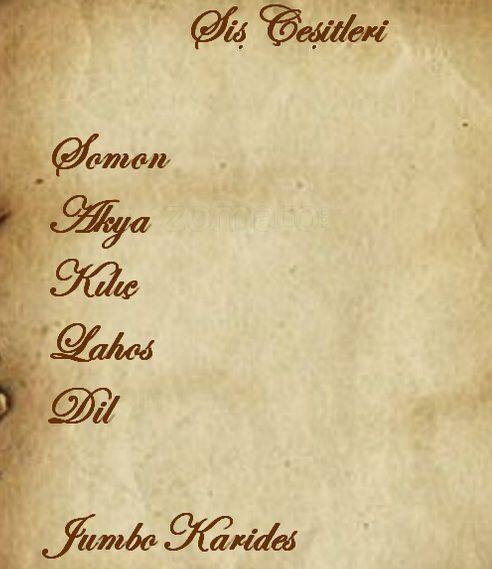 Şiş Çeşitleri
Somon
Akya
zomato
Kılıç
Lahos
Dil
Jumbo Karides